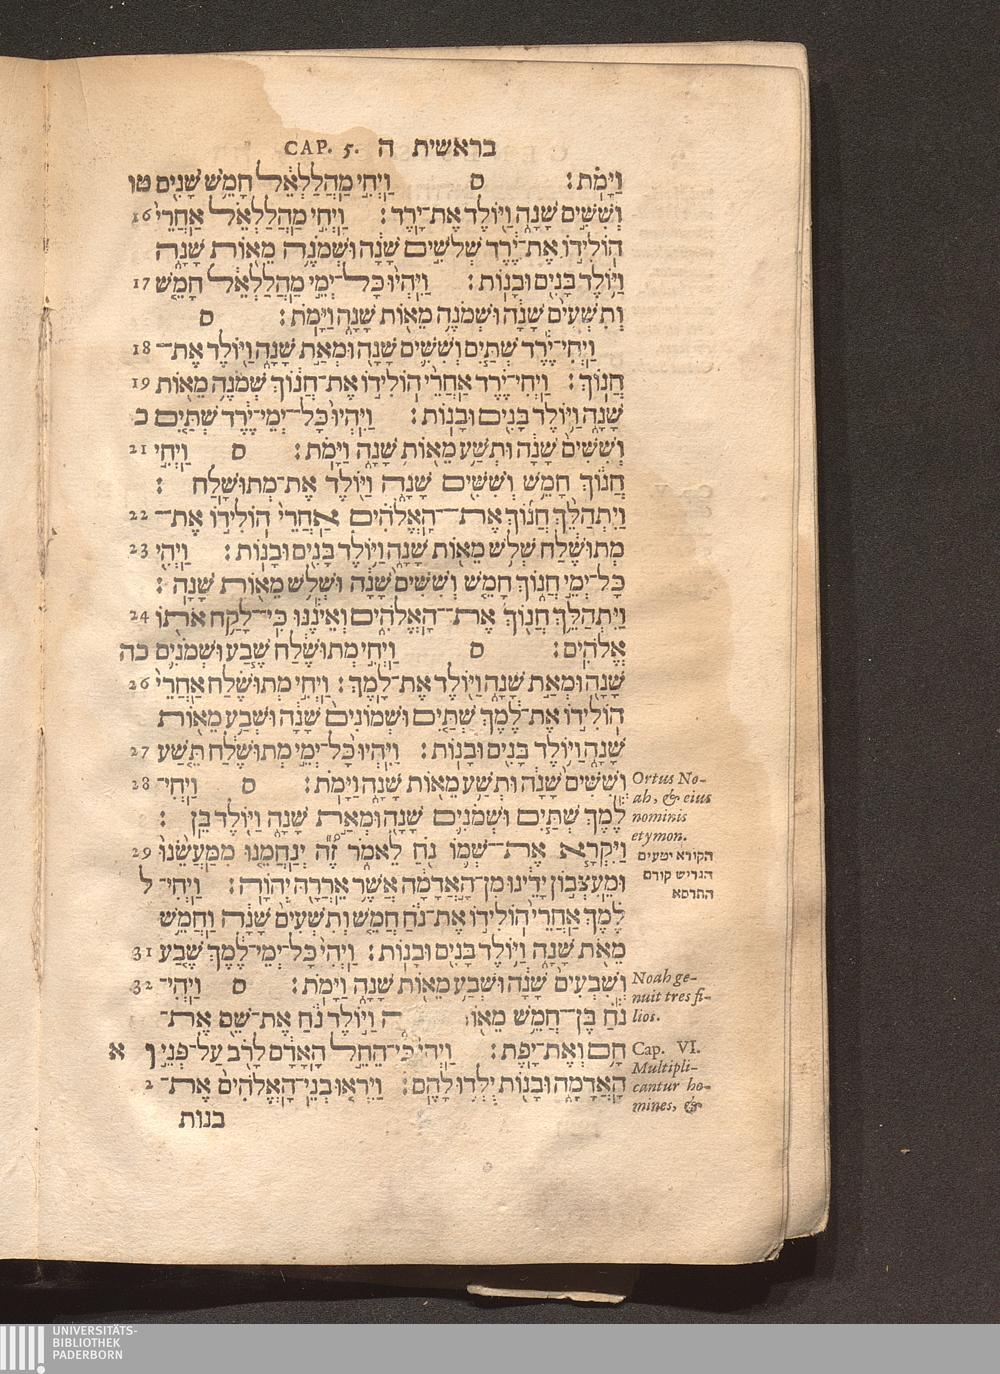 בראשית ה CAP. 5.
וַיָּמֹת׃ ס וַיְחִי מַהֲלַלְאֵל חָמֵשׁ שָׁנִים טו
וְשִׁשִּׁים שָׁנָה וַיּוֹלֶד אֶת־יָרֶד׃ וַיְחִי מַהֲלַלְאֵל אַחֲרֵי 16
הוֹלִידוֹ אֶת־יֶרֶד שְׁלֹשִׁים שָׁנָה וּשְׁמֹנֶה מֵאוֹת שָׁנָה
וַיּוֹלֶד בָּנִים וּבָנוֹת׃ וַיִּהְיוּ כָּל־יְמֵי מַהֲלַלְאֵל חָמֵשׁ 17
וְתִשְׁעִים שָׁנָה וּשְׁמֹנֶה מֵאוֹת שָׁנָה וַיָּמֹת׃ ס
וַיְחִי־יֶרֶד שְׁתַּיִם וְשִׁשִּׁים שָׁנָה וּמְאַת שָׁנָה וַיּוֹלֶד אֶת־ 18
חֲנוֹךְ׃ וַיְחִי־יֶרֶד אַחֲרֵי הוֹלִידוֹ אֶת־חֲנוֹךְ שְׁמֹנֶה מֵאוֹת 19
שָׁנָה וַיּוֹלֶד בָּנִים וּבָנוֹת׃ וַיִּהְיוּ כָּל־יְמֵי־יֶרֶד שְׁתַּיִם כ
וְשִׁשִּׁים שָׁנָה וּתְשַׁע מֵאוֹת שָׁנָה וַיָּמֹת׃ ס וַיְחִי 21
חֲנוֹךְ חָמֵשׁ וְשִׁשִּׁים שָׁנָה וַיּוֹלֶד אֶת־מְתוּשָׁלַח׃
וַיִּתְהַלֵּךְ חֲנוֹךְ אֶת־הָאֱלֹהִים אַחֲרֵי הוֹלִידוֹ אֶת־ 22
מְתוּשֶׁלַח שְׁלֹשׁ מֵאוֹת שָׁנָה וַיּוֹלֶד בָּנִים וּבָנוֹת׃ וַיְהִי 23
כָּל־יְמֵי חֲנוֹךְ חָמֵשׁ וְשִׁשִּׁים שָׁנָה וּשְׁלֹשׁ מֵאוֹת שָׁנָה׃
וַיִּתְהַלֵּךְ חֲנוֹךְ אֶת־הָאֱלֹהִים וְאֵינֶנּוּ כִּי־לָקַח אֹתוֹ 24
אֱלֹהִים׃ ס וַיְחִי מְתוּשֶׁלַח שֶׁבַע וּשְׁמֹנִים כה
שָׁנָה וּמְאַת שָׁנָה וַיּוֹלֶד אֶת־לָמֶךְ׃ וַיְחִי מְתוּשֶׁלַח אַחֲרֵי 26
הוֹלִידוֹ אֶת־לֶמֶךְ שְׁתַּיִם וּשְׁמוֹנִים שָׁנָה וּשְׁבַע מֵאוֹת
שָׁנָה וַיּוֹלֶד בָּנִים וּבָנוֹת׃ וַיִּהְיוּ כָּל־יְמֵי מְתוּשֶׁלַח תֵּשַׁע 27
וְשִׁשִּׁים שָׁנָה וּתְשַׁע מֵאוֹת שָׁנָה וַיָּמֹת׃ ס וַיְחִי־ 28
לֶמֶךְ שְׁתַּיִם וּשְׁמֹנִים שָׁנָה וּמְאַת שָׁנָה וַיּוֹלֶד בֵּן׃
וַיִּקְרָא אֶת־שְׁמוֹ נֹחַ לֵאמֹר זֶה יְנַחֲמֵנוּ מִמַּעֲשֵׂנוּ 29
וּמֵעִצְּבוֹן יָדֵינוּ מִן־הָאֲדָמָה אֲשֶׁר אֵרֲרָהּ יְהוָה׃ וַיְחִי־ ל
לֶמֶךְ אַחֲרֵי הוֹלִידוֹ אֶת־נֹחַ חָמֵשׁ וְתִשְׁעִים שָׁנָה וַחֲמֵשׁ
מֵאֹת שָׁנָה וַיּוֹלֶד בָּנִים וּבָנוֹת׃ וַיְהִי כָּל־יְמֵי־לֶמֶךְ שֶׁבַע 31
וְשִׁבְעִים שָׁנָה וּשְׁבַע מֵאוֹת שָׁנָה וַיָּמֹת׃ ס וַיְהִי־ 32
נֹחַ בֶּן־חֲמֵשׁ מֵאוֹ ה וַיּוֹלֶד נֹחַ אֶת־שֵׁם אֶת־
חָם וְאֶת־יָפֶת׃ וַיְהִי כִּי־הֵחֵל הָאָדָם לָרֹב עַל־פְּנֵי ו א
הָאֲדָמָה וּבָנוֹת יֻלְּדוּ לָהֶם׃ וַיִּרְאוּ בְנֵי־הָאֱלֹהִים אֶת־ 2
בנות
Ortus No-
ah, & eius
nominis
etymon.
הקורא ימעים
הגריש קורם
התרסא
Noah ge-
nuit tres fi-
lios.
Cap. VI.
Multipli-
cantur ho-
mines, &
UNIVERSITÄTS-
BIBLIOTHEK
PADERBORN